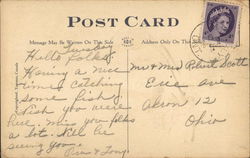 POST CARD
Message May Be Written On This Side
Address Only On This
Tuesday
Hello Folks:
Having a nice
time catching
some fish.
Wish you were
here. Miss you folks
a lot. Will be
seeing you.
& Tony
Mr & Mrs Robert Scott
Erie Ave
Akron 12
Ohio